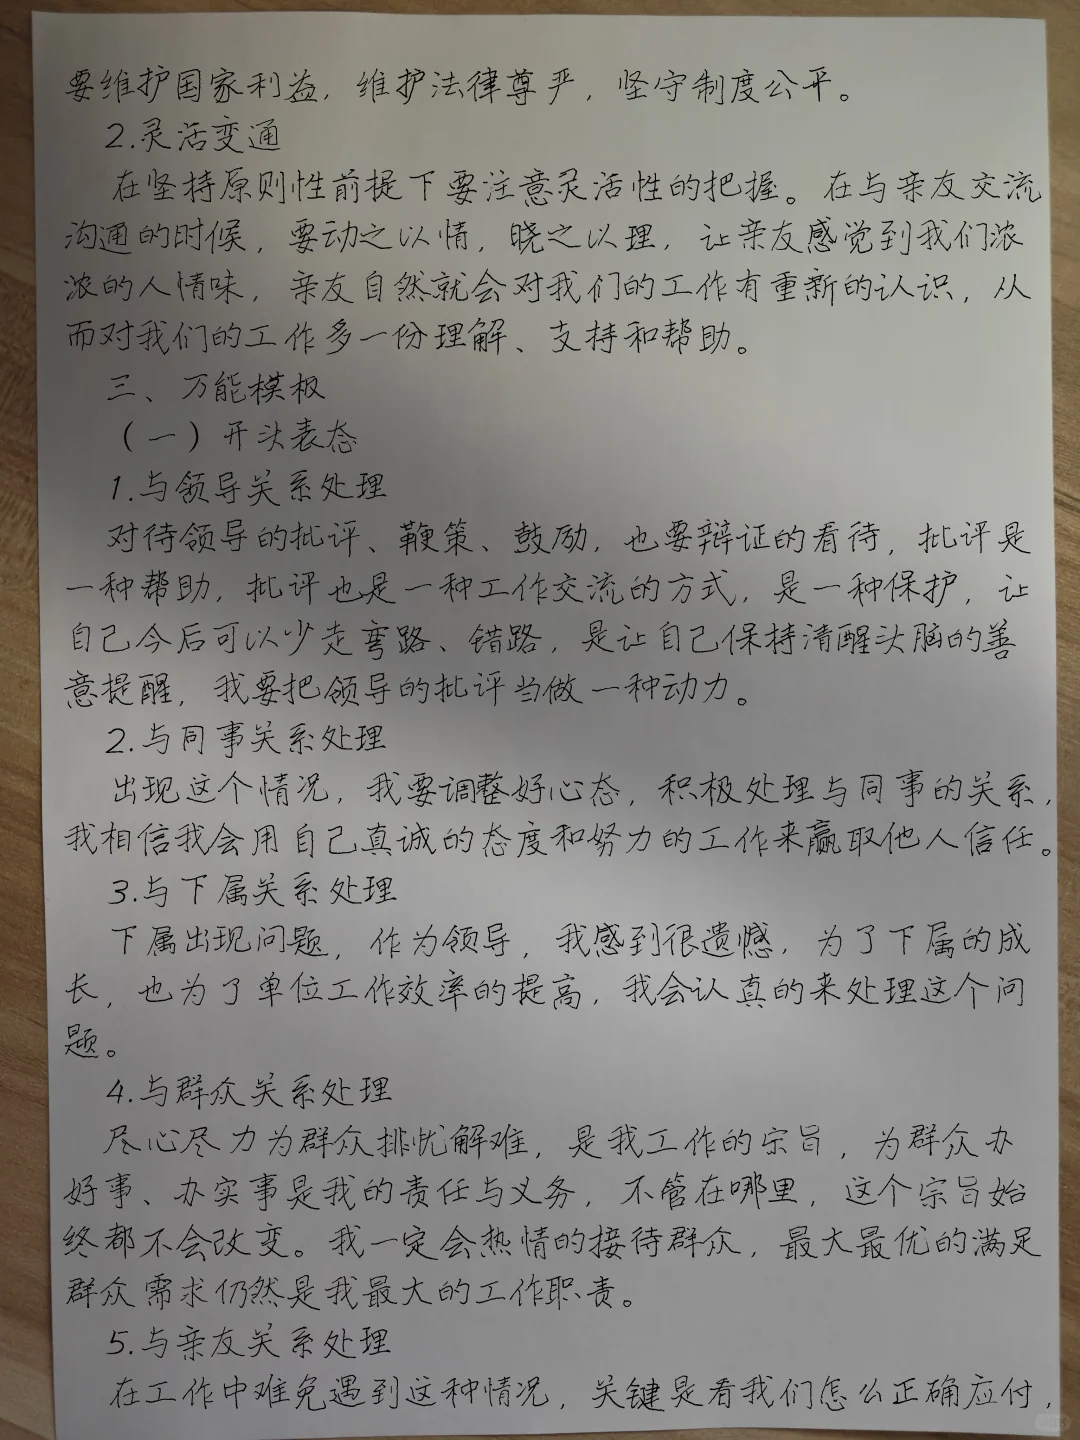 要维护国家利益，维护法律尊严，坚守制度公平。
2.灵活变通
在坚持原则性前提下要注意灵活性的把握。在与亲友交流
沟通的时候，要动之以情，晓之以理，让亲友感觉到我们浓
浓的人情味，亲友自然就会对我们的工作有重新的认识，从
而对我们的工作多一份理解、支持和帮助。
三、万能模板
（一）开头表态
1.与领导关系处理
对待领导的批评、鞭策、鼓励，也要辩证的看待，批评是
一种帮助，批评也是一种工作交流的方式，是一种保护，让
自己今后可以少走弯路、错路，是让自己保持清醒头脑的善
意提醒，我要把领导的批评当做一种动力。
2.与同事关系处理
出现这个情况，我要调整好心态，积极处理与同事的关系，
我相信我会用自己真诚的态度和努力的工作来赢取他人信任。
3.与下属关系处理
下属出现问题，作为领导，我感到很遗憾，为了下属的成
长，也为了单位工作效率的提高，我会认真的来处理这个问
题。
4.与群众关系处理
尽心尽力为群众排忧解难，是我工作的宗旨，为群众办
好事、办实事是我的责任与义务，不管在哪里，这个宗旨始
终都不会改变。我一定会热情的接待群众，最大最优的满足
群众需求仍然是我最大的工作职责。
5.与亲友关系处理
在工作中难免遇到这种情况，关键是看我们怎么正确应付，